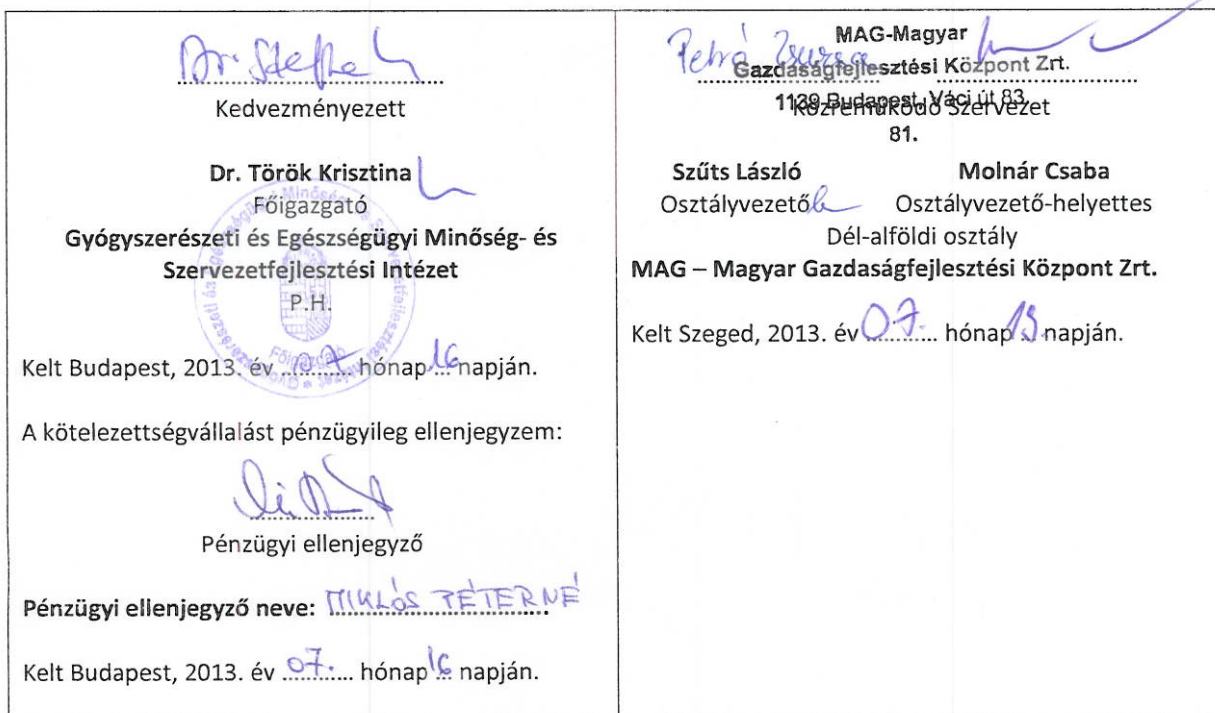 Dr. Stefka
Kedvezményezett
Dr. Török Krisztina
Főigazgató
Gyógyszerészeti és Egészségügyi Minőség- és
Szervezetfejlesztési Intézet
P.H.
Főigazgató
Kelt Budapest, 2013. év 07 hónap 16 napján.
A kötelezettségvállalást pénzügyileg ellenjegyzem:
Pénzügyi ellenjegyző
Pénzügyi ellenjegyző neve: MIKLÓS PÉTERNÉ
Kelt Budapest, 2013. év 07. hónap 16 napján.
Petró Zsuzsa
MAG-Magyar
Gazdaságfejlesztési Központ Zrt.
1139 Budapest, Váci út 83.
Közreműködő Szervezet
81.
Szűts László Molnár Csaba
Osztályvezető Osztályvezető-helyettes
Dél-alföldi osztály
MAG – Magyar Gazdaságfejlesztési Központ Zrt.
Kelt Szeged, 2013. év 07. hónap 19. napján.